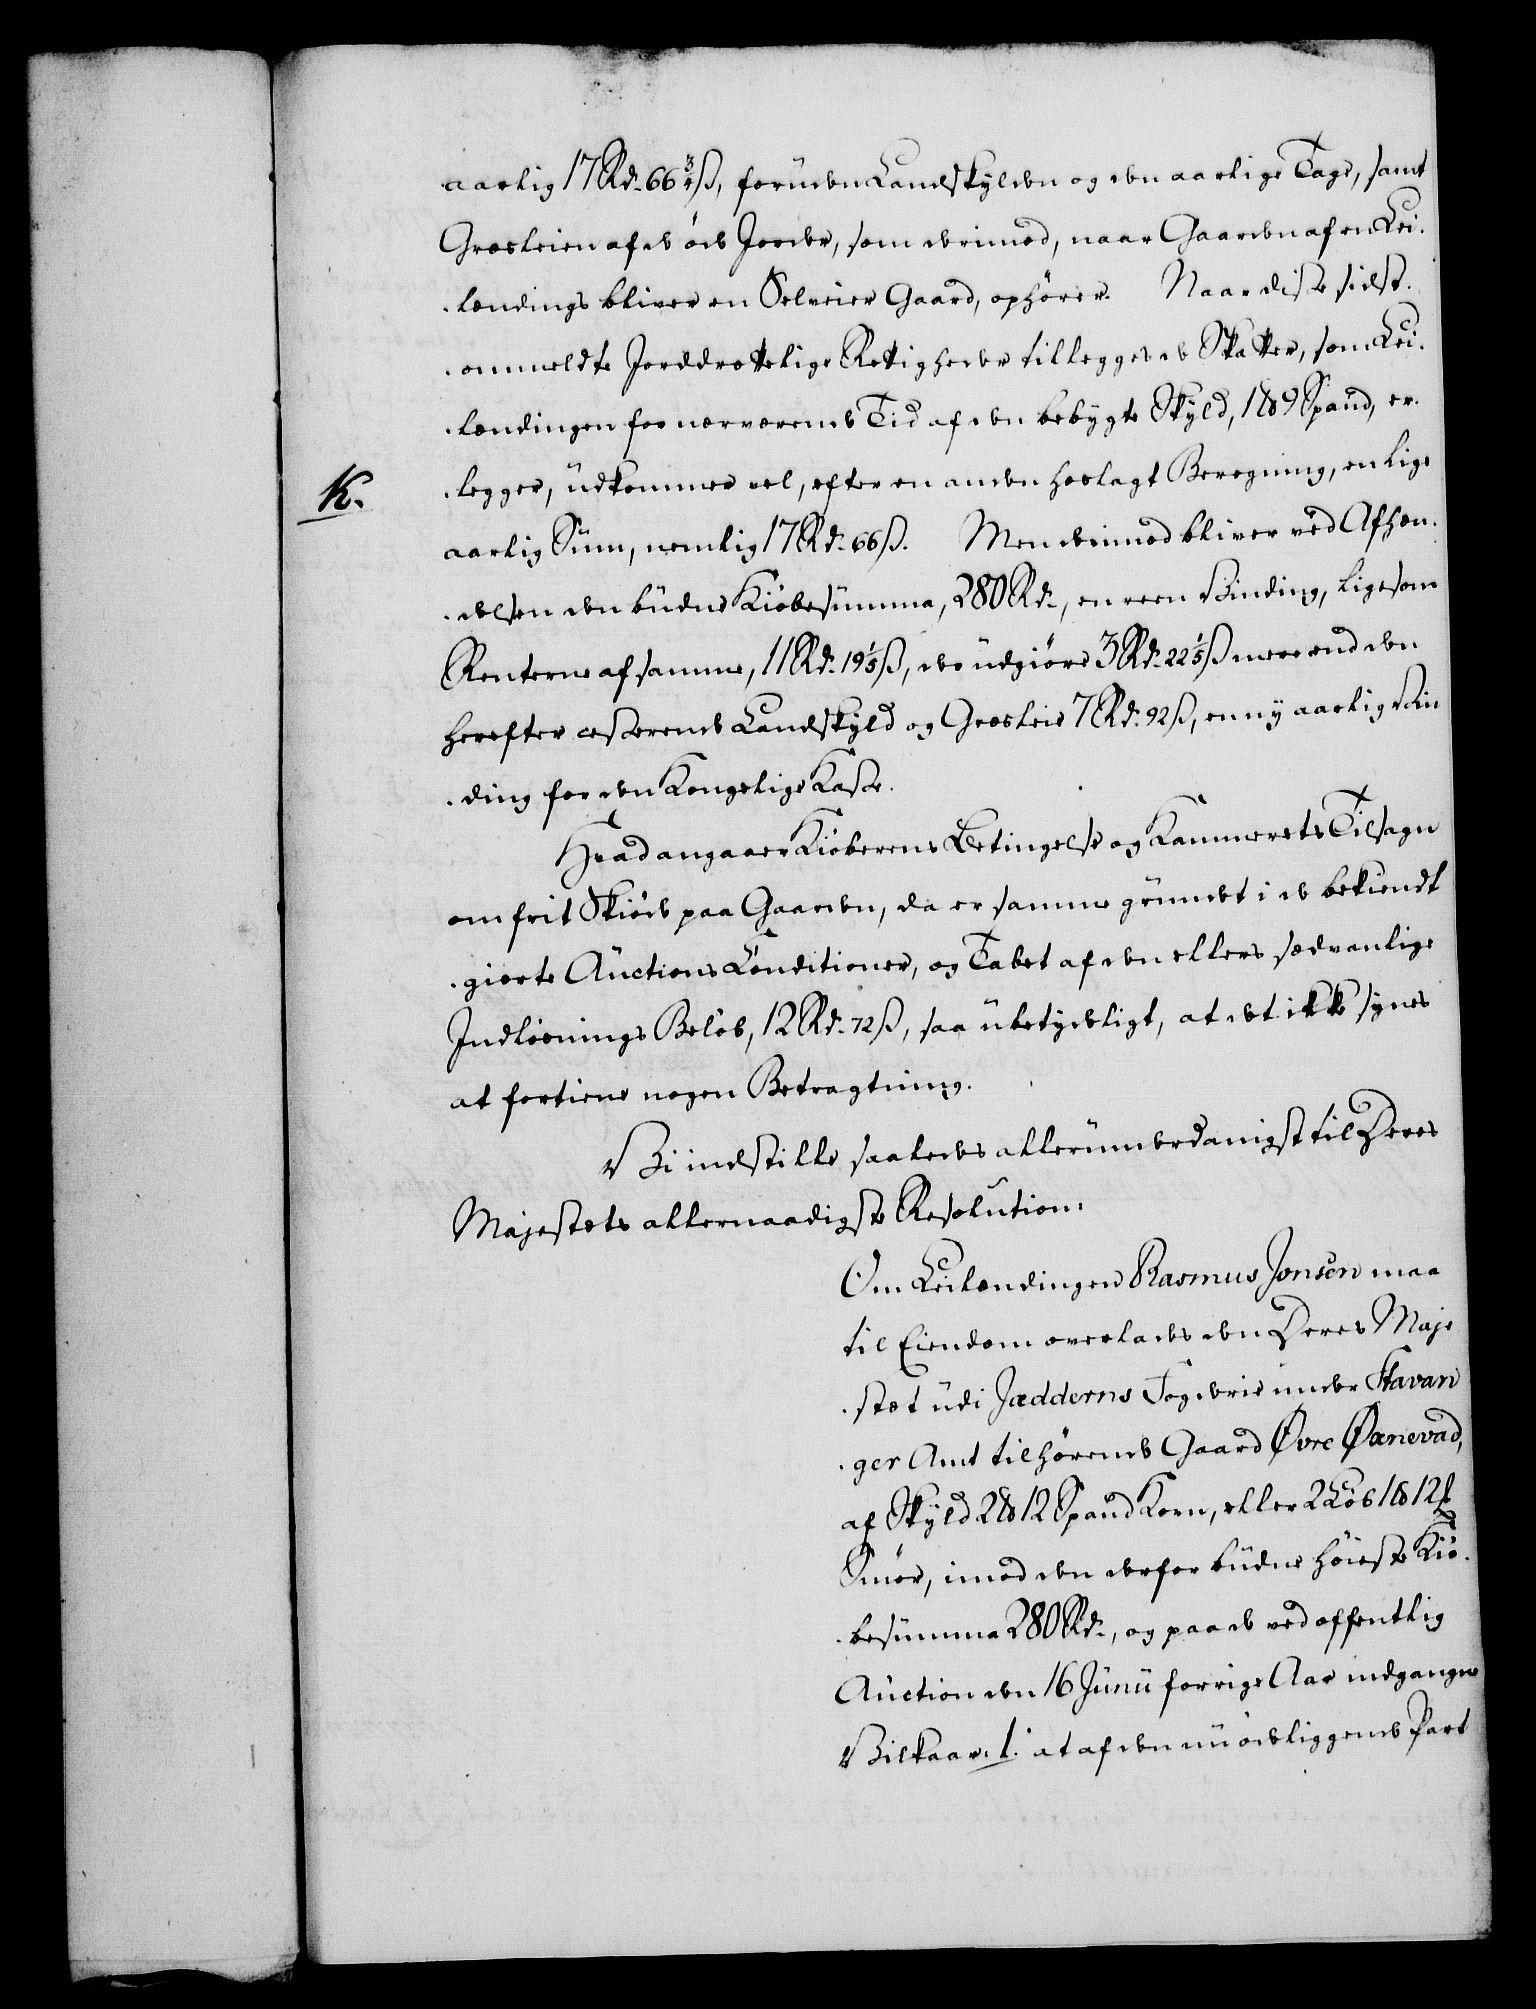 aarlig 17 Rd. 66 3/4 ß, foruden Landskylden og den aarlige Tage, samt
Græsleien af de öde Jorder, som derimod, naar Gaarden af en Lei-
-lændings bliver en Selveier Gaard, ophører. Naar disse sidst-
-ommeldte Jorddrottelige Rettigheder tillegges de Skatter, som Lei-
-lændingen for nærværende Tid af den bebygte Skyld, 1 9 Spand, er-
K.
-legger, udkommer vel, efter en anden hoslagt Beregning, en lige
aarlig Sum, nemlig 17 Rd. 66 ß. Men derimod bliver ved Afhæn-
-delsen den budne Kiöbesumma, 280 Rd., en reen Vinding, ligesom
Renterne af samme, 11 Rd. 19 1/5 ß, der udgiöre 3 Rd. 22 1/5 ß mere end den
herefter cesserende Landskyld og Græsleie 7 Rd. 92 ß, en ny aarlig Vin
-ding for den Kongelige Kasse.
Hvad angaaer Kiöberens Betingelse og Kammerets Tilsagn
om frit Skiöde paa Gaarden, da er samme grundet i de bekiendt
-giorte Auctions Conditioner, og Tabet af den ellers sædvanlige
Indlösnings Belöb, 12 Rd. 72 ß, saa ubetydeligt, at det ikke synes
at fortiene nogen Betragtning.
Vi indstille saaledes allerunderdanigst til Deres
Majestæts allernaadigste Resolution:
Om Leilændingen Rasmus Jonsen maa
til Eiendom overlades den Deres Maje
-stæt udi Jædderns Fogderie under Stavan
-ger Amt tilhørende Gaard Øvre Øxnevad,
af Skyld 2 12 Spand Korn, eller 2 Löb 1 12
Smör, imod den derfor budne höieste Kiö-
-besumma 280 Rd., og paa de ved offentlig
Auction den 16 Junii forrige Aar indgangne
Vilkaar: 1. at af den nu öde liggende Part